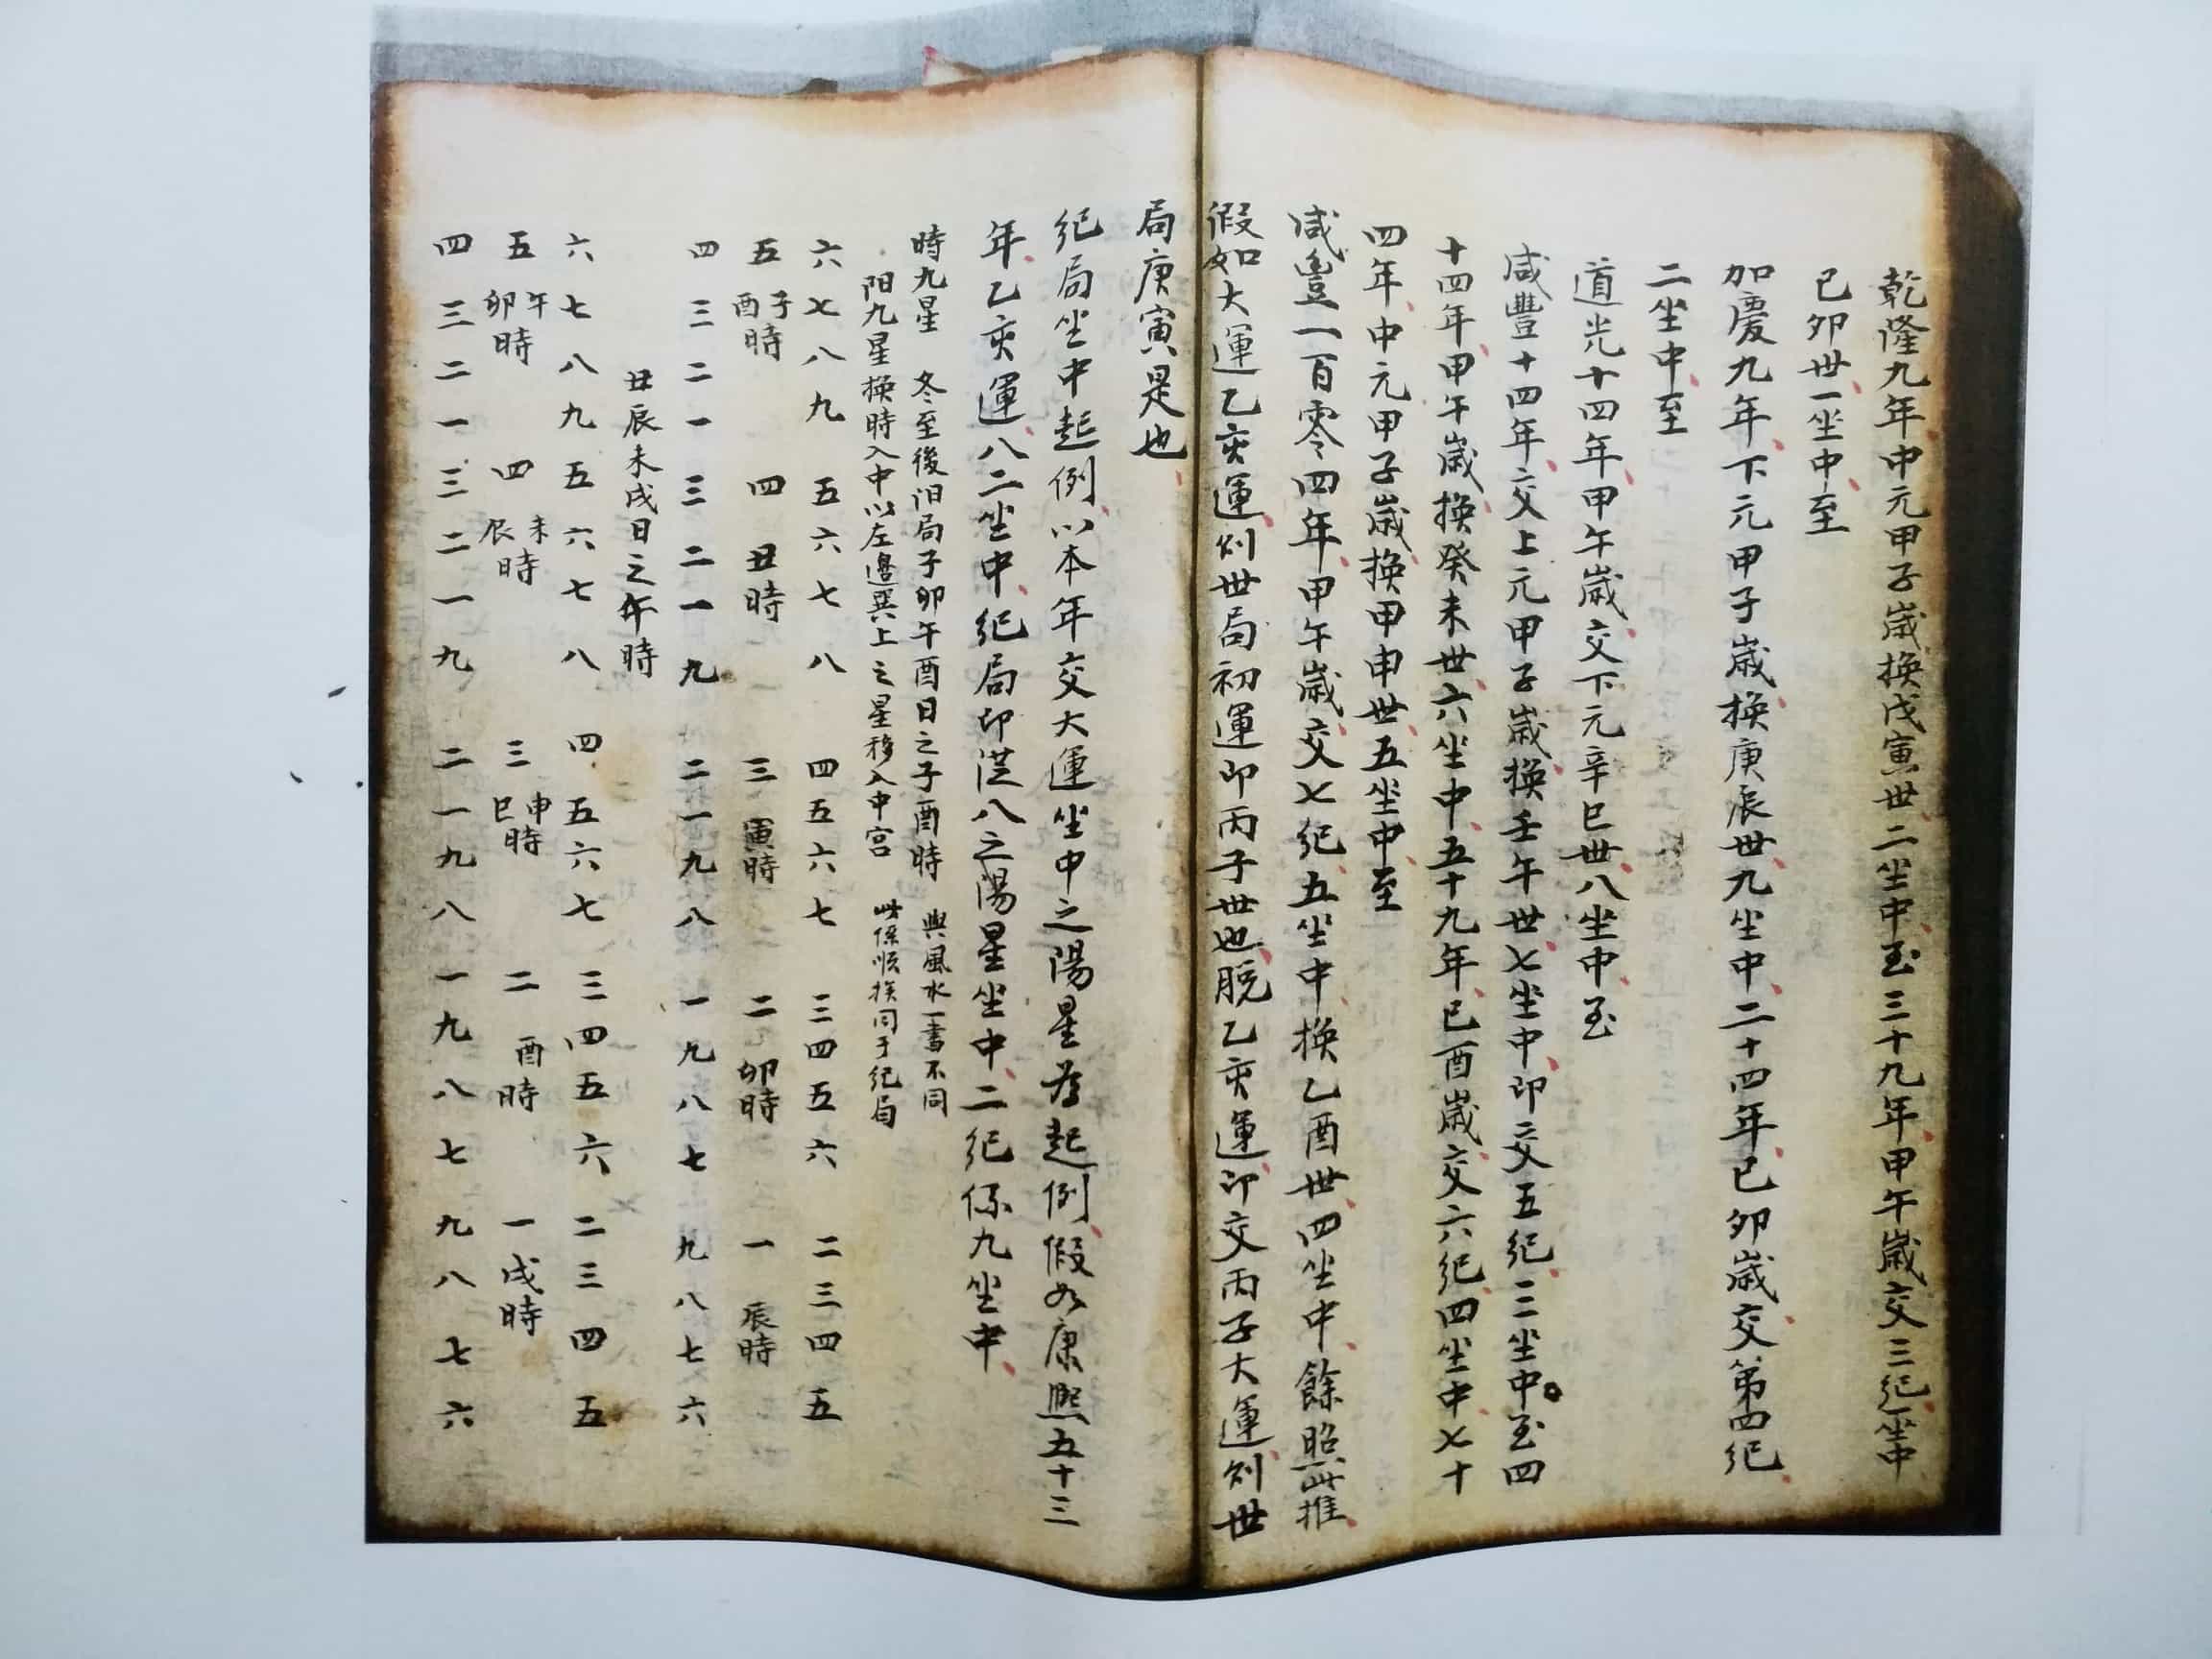 乾隆九年中元甲子嵗換戊寅世二坐中至三十九年甲午嵗交三紀坐中
已卯世一坐中至
加慶九年下元甲子嵗換庚辰世九坐中二十四年已卯嵗交第四紀
二坐中至
道光十四年甲午嵗交下元辛巳世八坐中至
咸豐十四年交上元甲子嵗換壬午世七坐中即交五紀三坐中至四
十四年甲午嵗換癸未世六坐中五十九年已酉嵗交六紀四坐中七十
四年中元甲子嵗換甲申世五坐中至
咸豐一百零四年甲午嵗交七紀五坐中換乙酉世四坐中餘照此推
假如大運乙亥運則世局初運即丙子世也脱乙亥運即交丙子大運則世
局庚寅是也
紀局坐中起例以本年交大運坐中之陽星為起例假如康熙五十三
年乙亥運八二坐中紀局即從八之陽星坐中二紀係九坐中
時九星 冬至後汨局子卯午酉日之子酉時 與風水一書不同
阳九星換時入中以左邉巽上之星移入中宫 此係順挨同于紀局
六七八九 五六七八 四五六七 三四五六 二三四五
五 子酉時 四 丑時 三 寅時 二 卯時 一 辰時
四三二一 三二一九 二一九八 一九八七 九八七六
丑辰未戌日之午時
六七八九 五六七八 四五六七 三四五六 二三四五
五 午卯時 四 未辰時 三 申巳時 二 酉時 一 戌時
四三二一 三二一九 二一九八 一九八七 九八七六